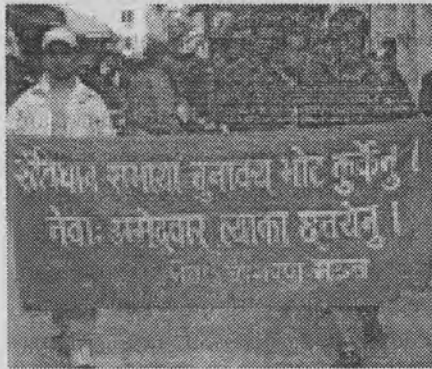 संविधान सभाया चुनावय् भोट कुर्केनु ।
नेवाः उम्मेदवार त्याका छ्वयेनु ।
नेवाः